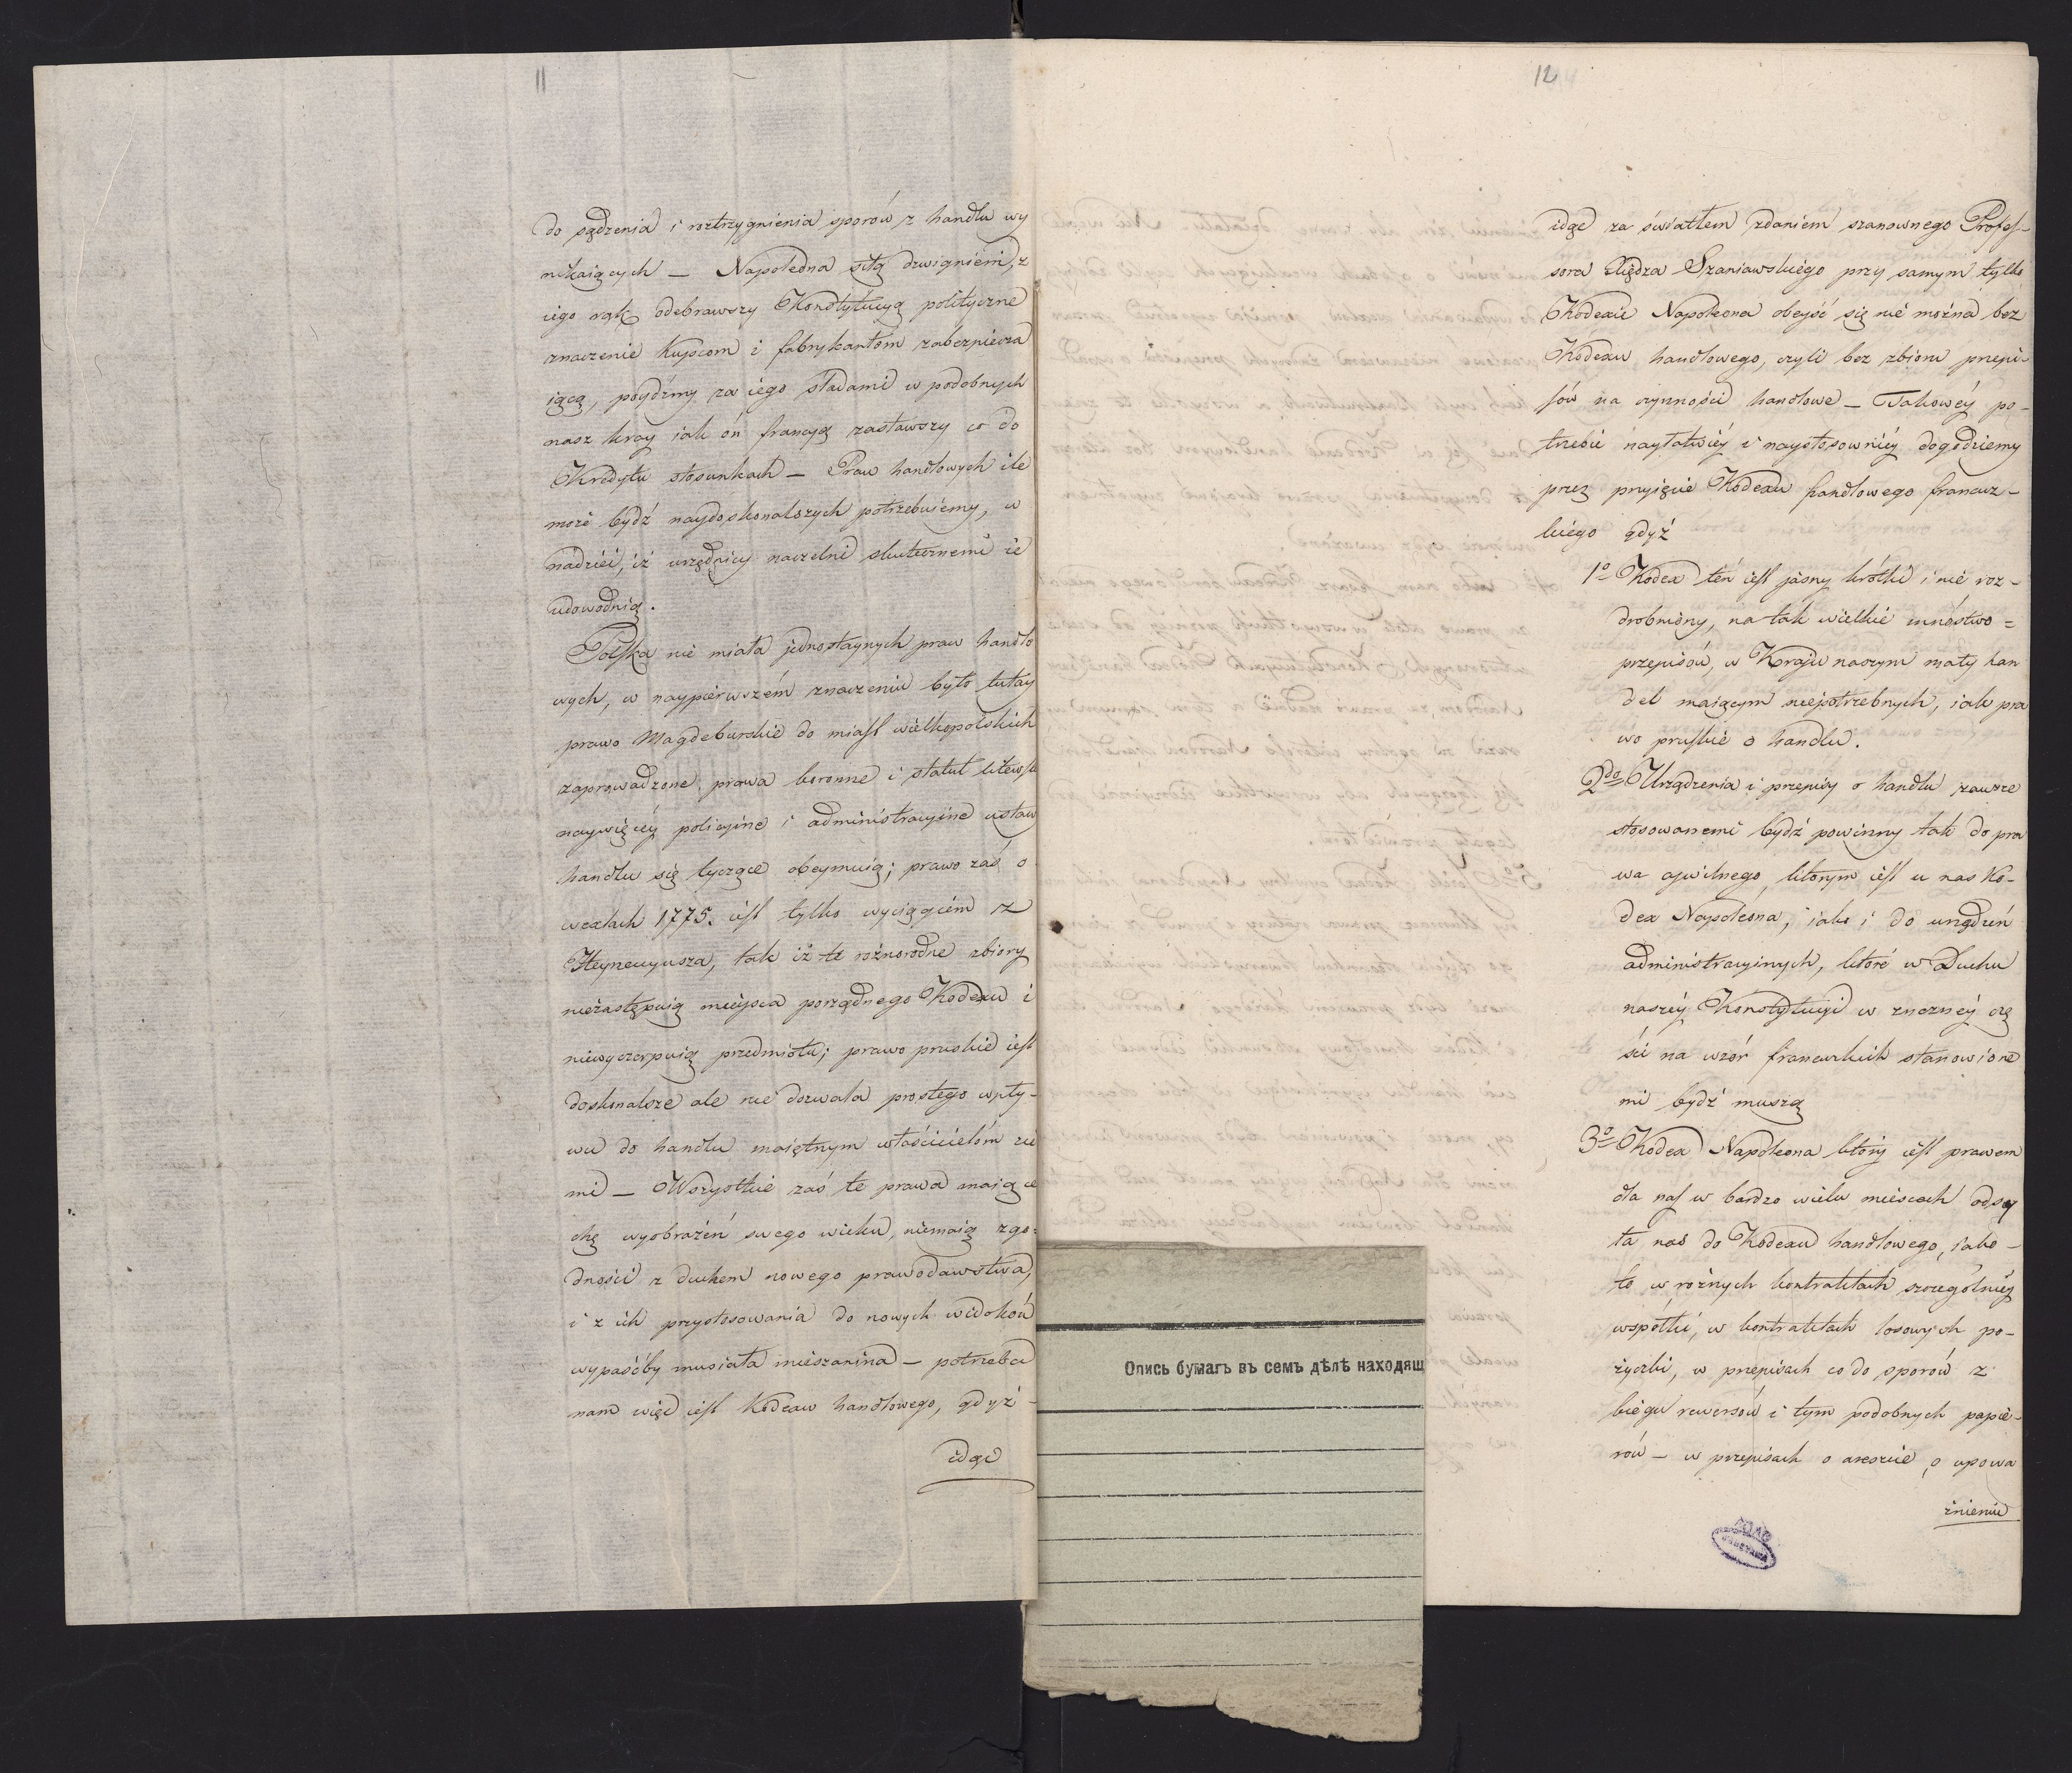 11
do sądzenia i roztrzygnienia sporów z handlu wy
nikaiących — Napoleona siłą dzwignieni, z
iego rąk odebrawszy Konstytucyą polityczne
znaczenie kupcom i fabrykantom zabezpiecza
iącą, póydźmy za iego sladami w podobnych
nasz kray iak ón francyą zastawszy co do
Kredytu stosunkach — Praw handlowych ile
może bydź naydoskonalszych potrzebuiemy, w
nadziei, iż urzędnicy naczelni skutecznemi ie
udowodnią.
Polska nie miała jednostaynych praw handlo
wych, w naypierwszém znaczeniu było tutay
prawo Magdeburskie do miast wielkopolskich
zaprowadzone, prawa koronne i statut litewsk
naywięcéy policyine i administracyine ustaw
handlu się tyczące obeymuią; prawo zaś o
wexlach 1775. iest tylko wyciągiem z
Heynecyusza, tak iż te różnorodne zbiory
niezastępuią mieysca porządnego Kodexu i
niewyczerpuią przedmiotu; prawo pruskie iest
doskonalsze ale nie dozwala prostego wpły-
wu do handlu maiętnym właścicielóm zie
mi — Wszystkie zaś te prawa maiące
chę wyobrażeń swego wieku, niemaią zgo-
dności z duchem nowego prawodawstwa,
i z ich przystosowania do nowych widoków
wypaśćby musiała mieszanina — potrzeba
nam więc iest Kodexu handlowego, gdyż
idąc
12
idąc za światłem zdaniem szanownego Profes-
sora Xiędza Szaniawskiego przy samym tylko
Kodexie Napoleona obeyść się nie można bez
Kodexu handlowego, czyli bez zbioru przepi-
sów na czynności handlowe — Takowéy po-
trzebie naytatwiéy i naystosowniéy dogodziemy
przez przyięcie Kodexu handlowego francuz-
kiego gdyż
1º Kodex ten iest jasny krótki i nie roz-
drobniony, na tak wielkie mnóstwo =
przepisów, w Kraju naszym mały han
del maiącym niepotrzebnych, iak pra
wo pruskie o handlu.
2do Urządzenia i przepisy o handlu zawsze
stosowanemi bydź powinny tak do pra
wa cywilnego, którym iest u nas Ko-
dex Napoleona, iako i do urządzeń
administracyinych, które w Duchu
naszéy Konstytucyi w znaczney czę
ści na wzór francuzkich stanowione
mi bydź muszą
3º Kodex Napoleona który iest prawem
dla nas w bardzo wielu mieiscach odsy
ła nas do Kodexu handlowego, iako-
to w rożnych kontraktach szczególniéy
współki, w kontraktach losowych po-
życzki, w przepisach co do sporów z
biegu rewersów i tym podobnych papie-
rów — w przepisach o areszcie, o upowa
żnieniu
Опись бумагъ въ семъ дѣлѣ находящ